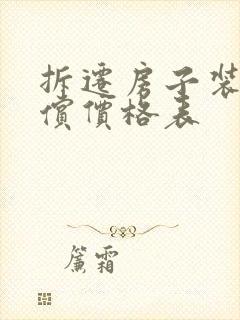 拆遷房子裝
償價格表
簾霜